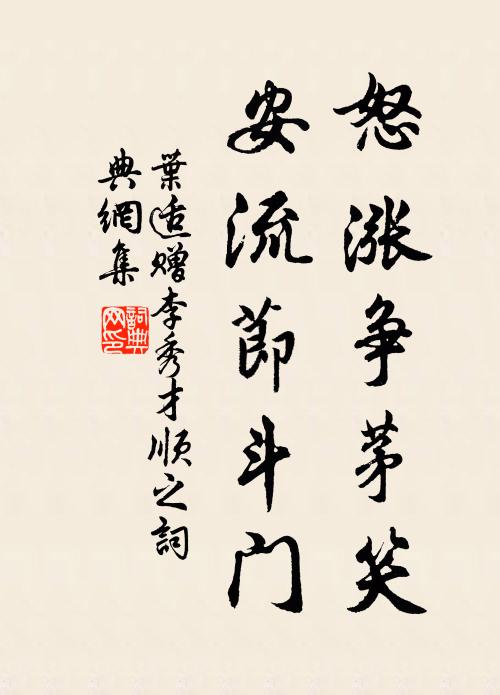 怒涨争茅笑
安流節斗门
葉适赠李秀才順之詞
典網集
詞典网印